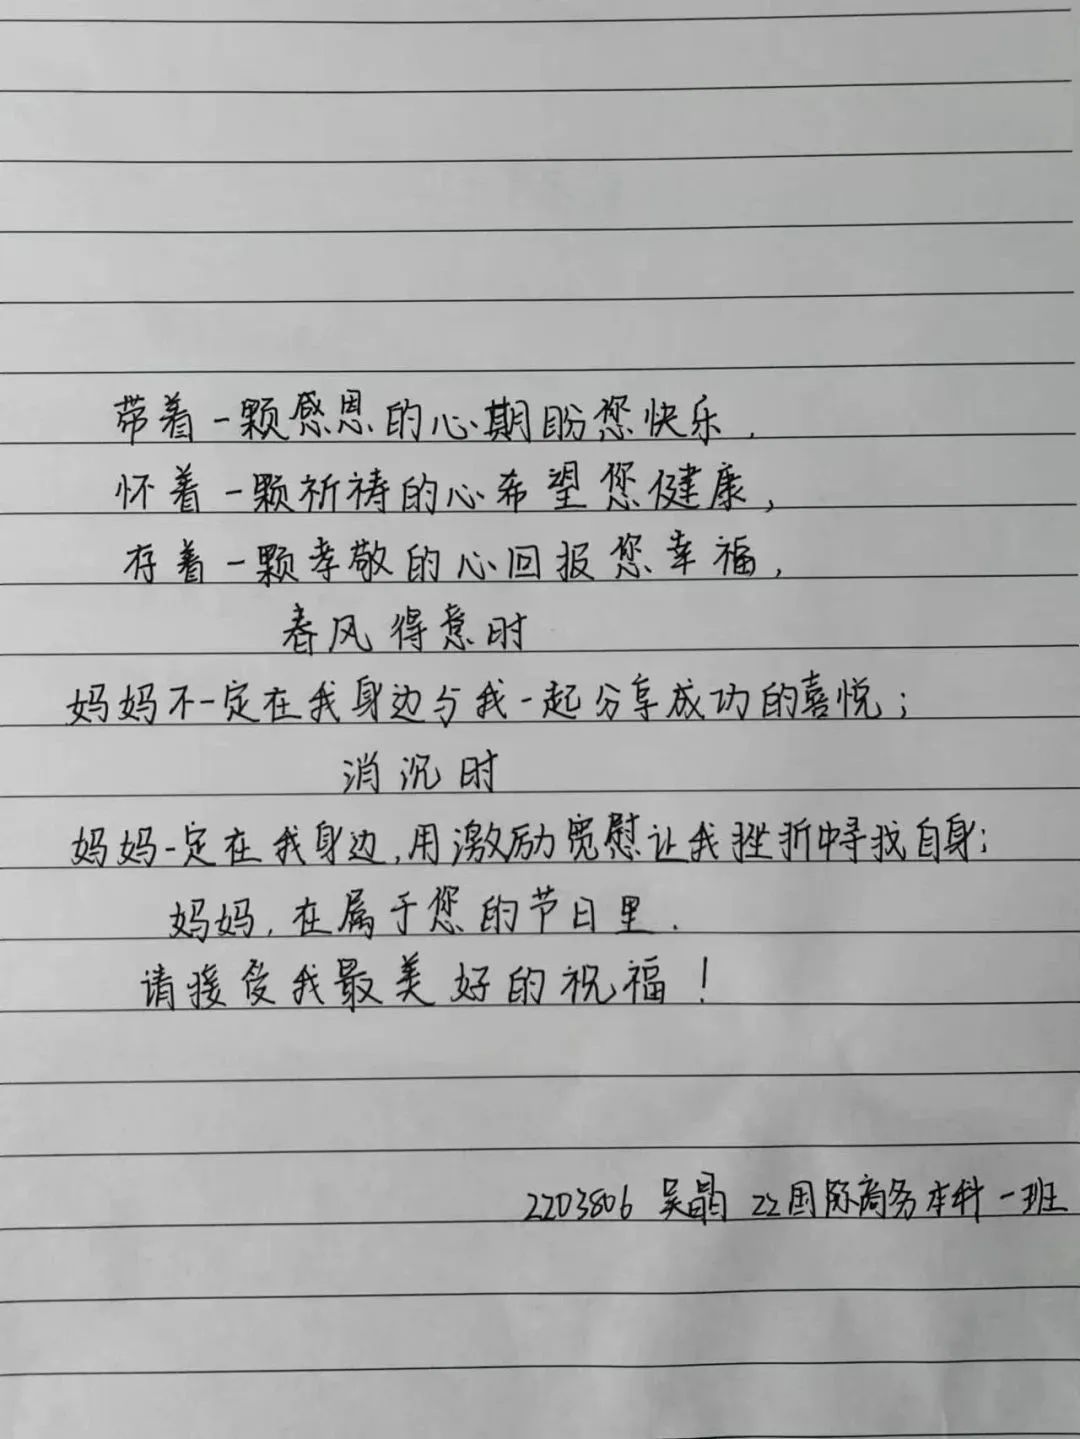 带着一颗感恩的心期盼您快乐，
怀着一颗祈祷的心希望您健康，
存着一颗孝敬的心回报您幸福，
春风得意时
妈妈不一定在我身边与我一起分享成功的喜悦；
消沉时
妈妈一定在我身边，用激励宽慰让我挫折中寻找自身；
妈妈，在属于您的节日里．
请接受我最美好的祝福！
2203806 吴晶 22国际商务本科一班